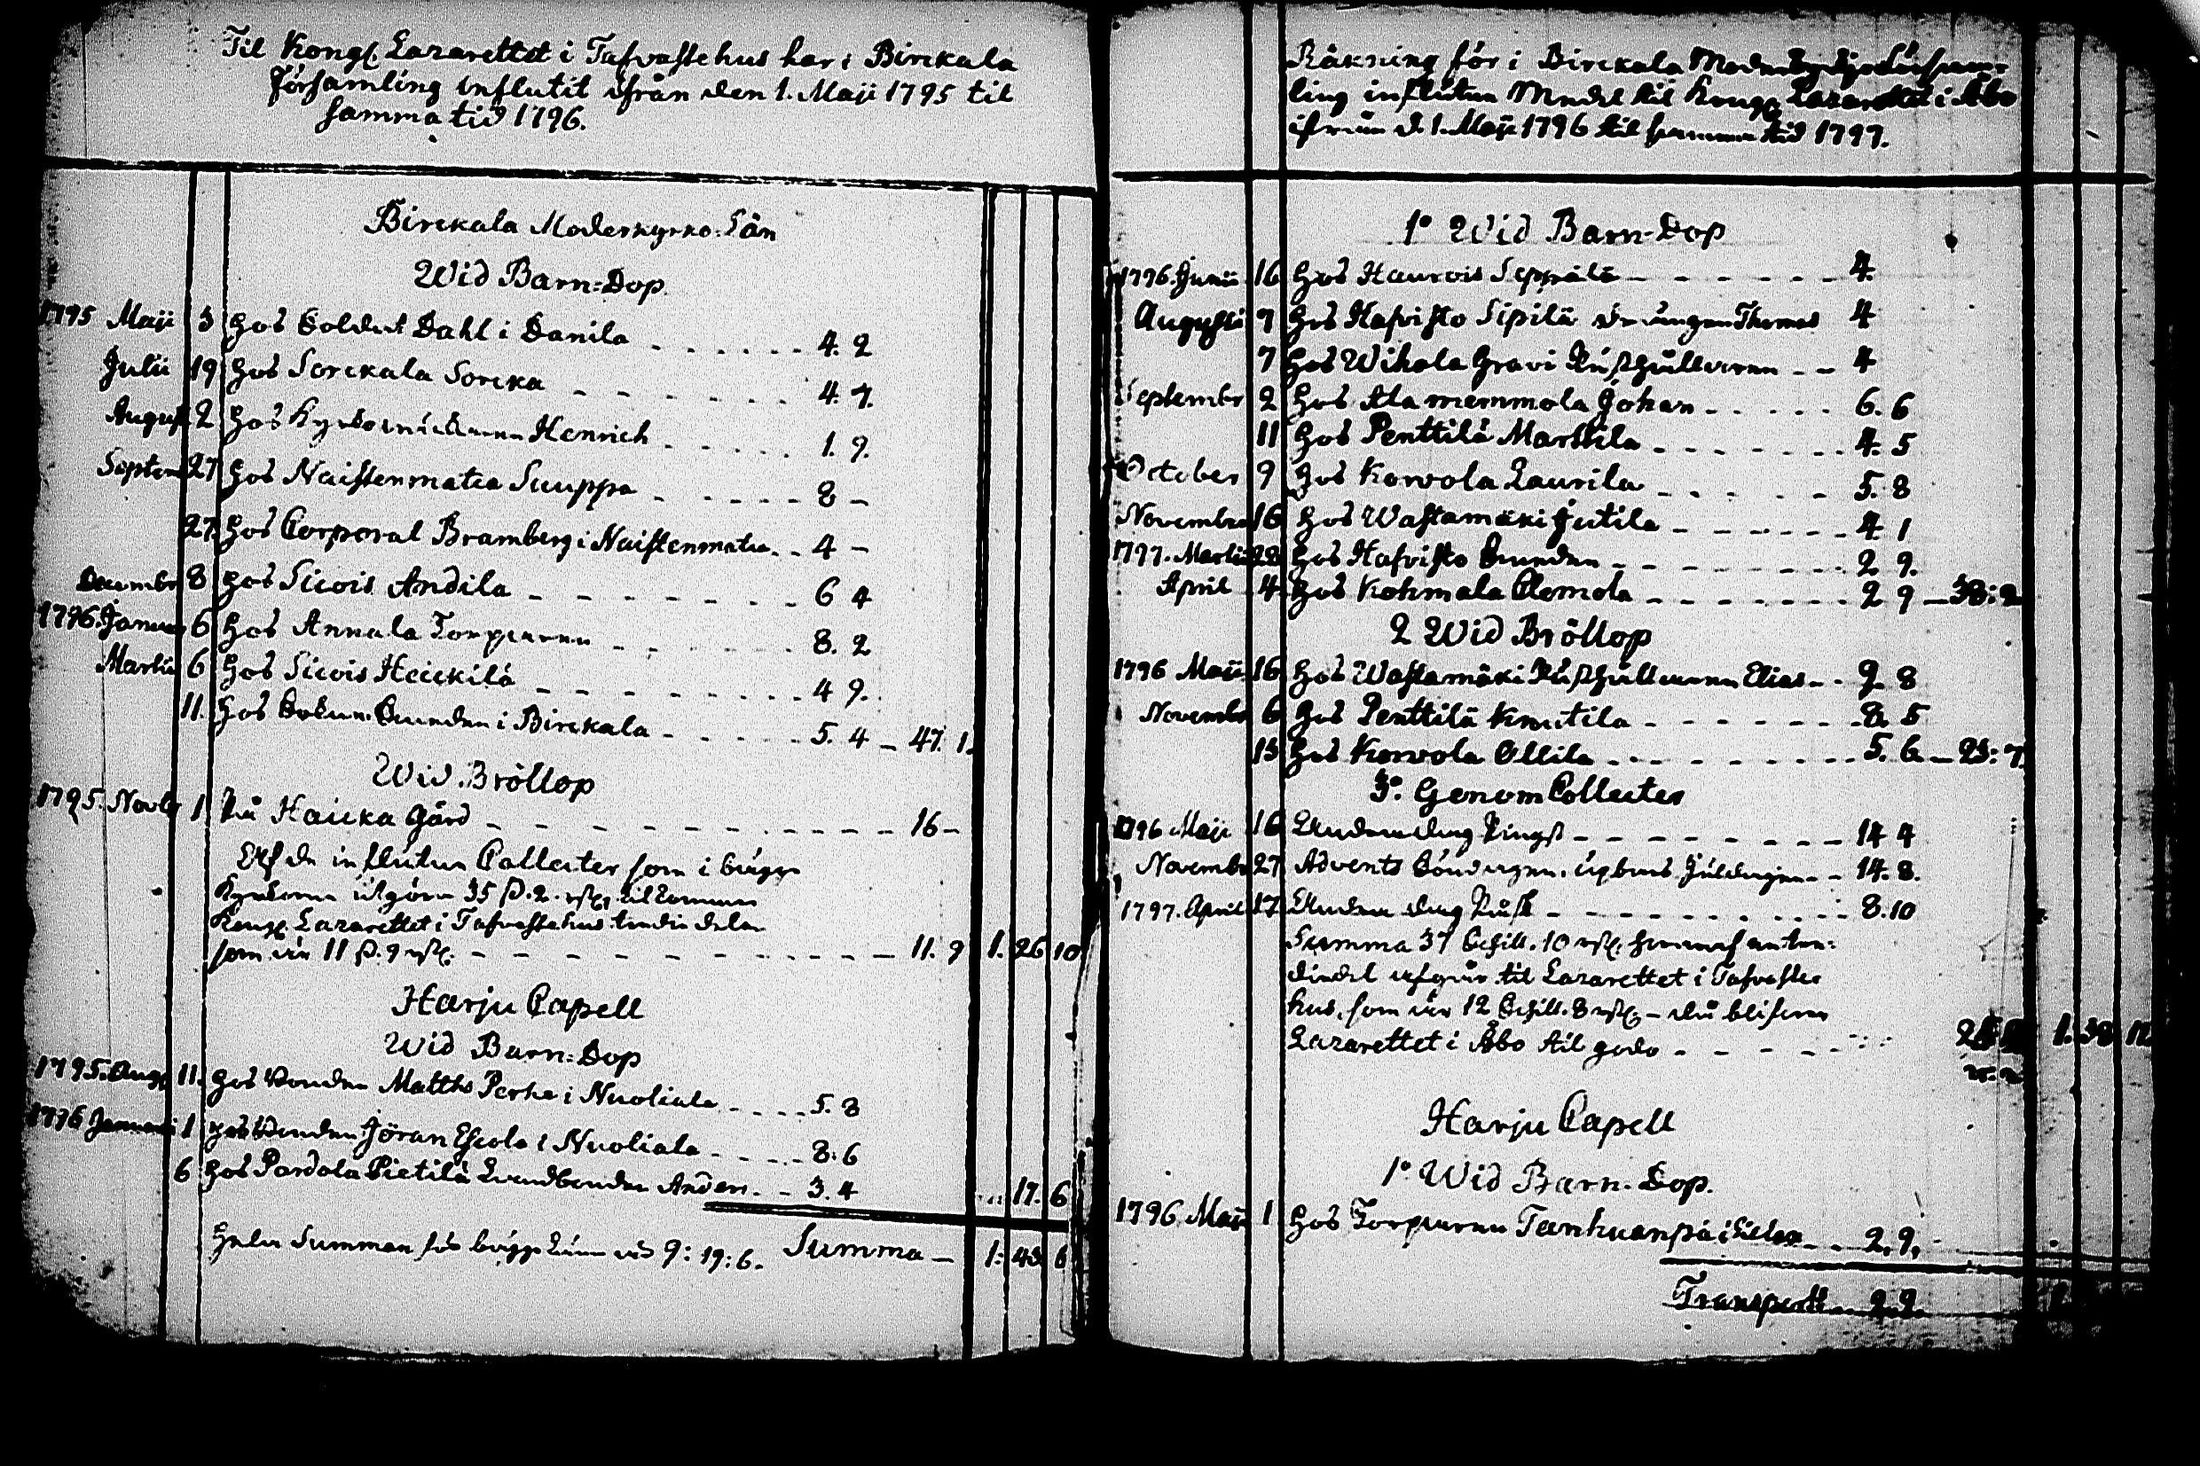 Til Kongl. Lazarettet i Tafvastehus har i Birckala
Församling influtit ifrån den 1. Maji 1795 til
samma tid 1796.
Birckala Moderkyrko-Sän
Wid Barn-Dop
1795 Maji 3 hos Soldat Dahl i Danila 4. 2
Julii 19 hos Sorckala Sorcka 4. 7.
August 2 hos Henrich 1. 9.
Septem 27 hos Naistenmatca Suuppa 8 -
27. hos Corporal Bramberg i Naistenmatca 4 -
Decembr 8 hos Sicois Andila 6 4
1796. Januar 6 hos Annala Torparen 8. 2
Martii 6 hos Sicois Heickilä 4 9.
11. hos Bonden i Birckala 5. 4 - 47. 1.
Wid Bröllop
1795. Novbr 1 På Haicka Gård 16 -
Af de influtne Collecter som i bägge
Kyrkorne utgöra 35 ß. 2. rst. tilkommer
Kongl. Lazarettet i Tafvastehus tredie delen
som är 11 ß. 9 rst. 11. 9 1. 26 10
Harju Capell
Wid Barn-Dop
1795. Aug 11. hos Bonden Matths Perhe i Nuoliala 5. 8
1796 Januarii 1 hos Bonden Jöran Eskola i Nuoliala 8. 6
6 hos Pardola Pietilä Landbonden Anders 3. 4 17. 6
Hela Summan för bägge 9: 19: 6. Summa - 1: 43 6
Räkning för i Birckala Moderkyrko Försam-
ling influtne Medel til Kongl. Lazarettet i Åbo
ifrån d. 1. Maji 1796 til samma tid 1797.
1° Wid Barn-Dop
1796. Junii 16 hos Haurois Seppälä 4.
Augusti 7 hos Hafvisto Sipilä drängen Thomas 4
7 hos Wihola Gravi Rusthållaren 4
Septembr 2 hos Alamemmola Johan 6. 6
11 hos Penttilä Marttila 4. 5
October 9 hos Korvola Laurila 5. 8
Novembr 16 hos Wastamäki Jutila 4 1
1797. Martii 28 hos Hafvisto Bonden 2 9.
April 4 hos Kohmala Clemola 2 9 - 38: 2
2 Wid Bröllop
1796 Maji 16 hos Wastamäki Rusthållaren Elias 9. 8
Novembr 6 hos Penttilä Knutila 8. 5
13 hos Korvola Ollila 5. 6 - 23: 7.
3°. Genom Collecter
1796 Maji 16 Andra dag Pingst 14 4
Novembr 27 Advents Söndagen, upburs Juldagen 14. 8.
1797. April 17 Andra dag Påsk 8. 10
Summa 37 Schill. 10 rst. hvaraf en tre-
diedel afgår til Lazarettet i Tafvaste
hus, som är 12 Schill. 8 rst - då blifver
Lazarettet i Åbo til godo 1. 38
Harju Capell
1° Wid Barn-Dop.
1796. Maji 1 hos Torparen Tanhuanpä i 2. 9.
Transport 2. 9.